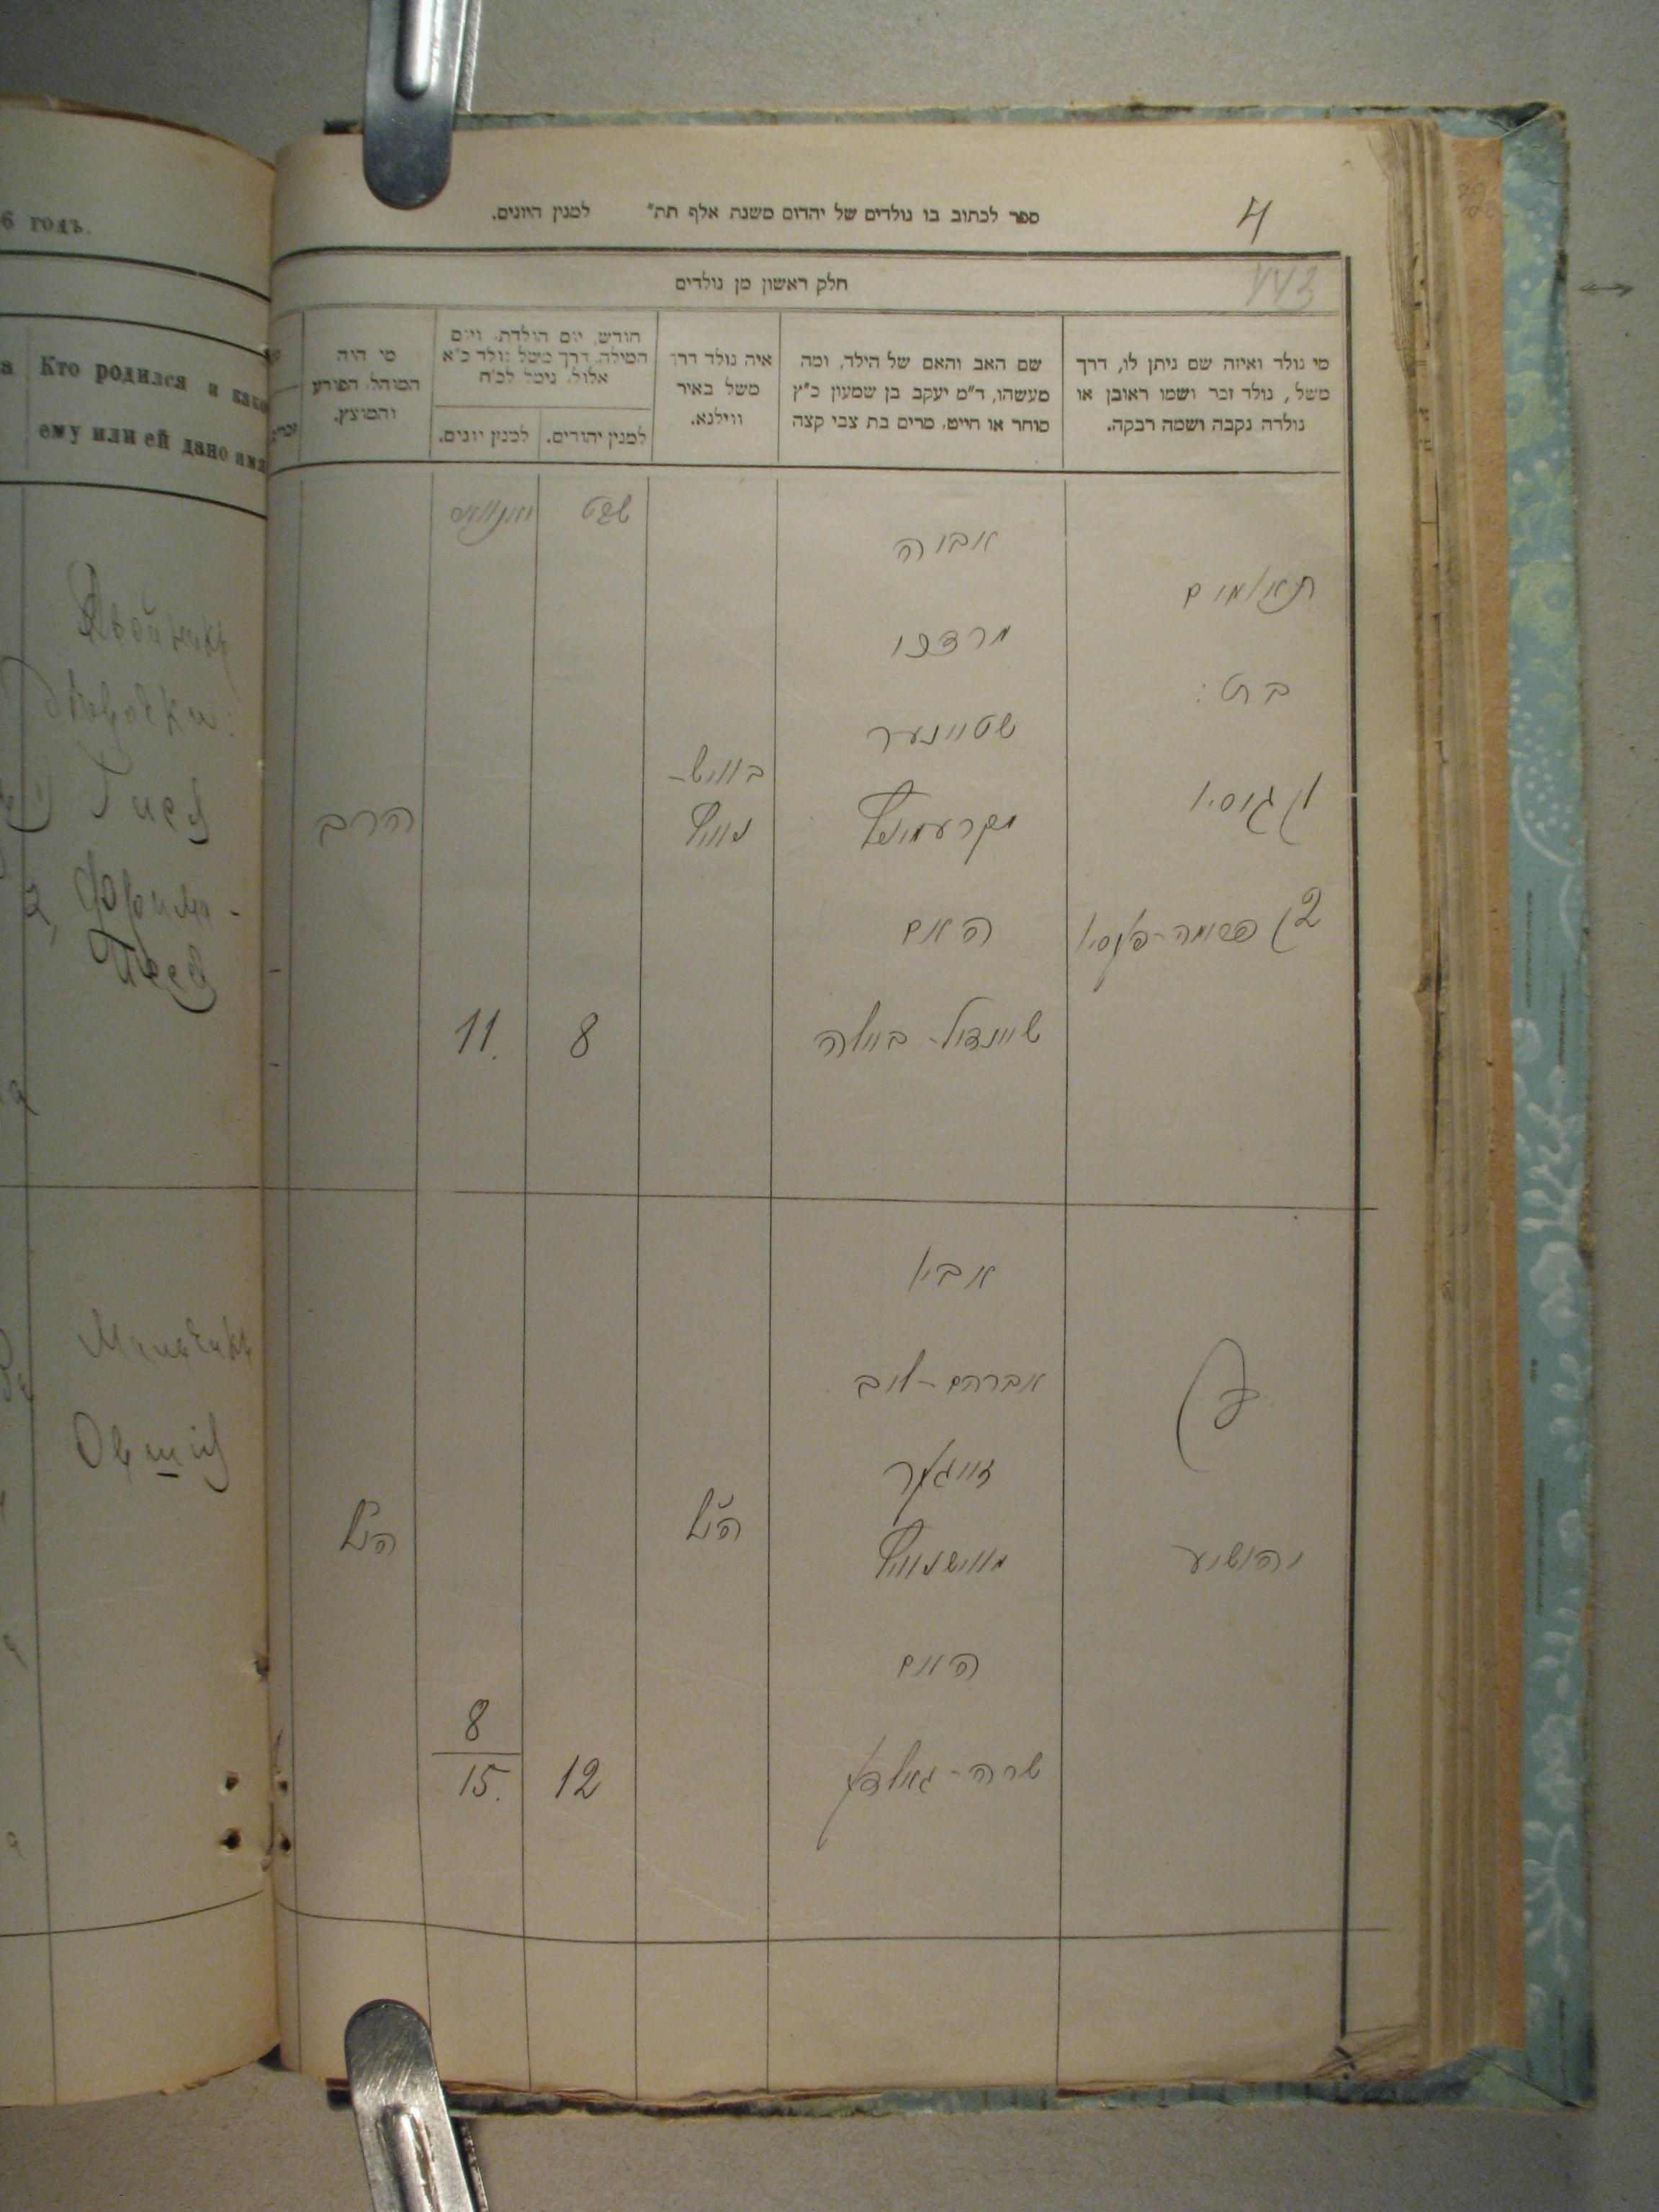 6 годъ.
Кто родился и како
ему или ей дано имя
Двойники
Дѣвочки:
Гися
Фрима-
Песя
Мальчикъ
Овшiй
4
ספר לכתוב בו נולדים של יהדום משנת אלף תת״ למנין היונים.
443
חלק ראשון מן נולדים
מי נולד ואיזה שם ניתן לו, דרך
משל, נולד זכר ושמו ראובן או
נולדה נקבה ושמה רבקה.
שם האב והאם של הילד, ומה
מעשהו, ד״מ יעקב בן שמעון כ״ץ
סוחר או חייט, מרים בת צבי קצה
איה נולד דרך
משל באיר
ווילנא.
חודש, יום הולדת, ויום
המילה, דרך משל נולד כ״א
אלול, נימל לכ״ח
למנין יהודים.
למנין יונים.
מי היה
המוהל, הפורע
והמוצץ.
תאומים
ברט:
1) גיסיא
2) פרומה-פעסיא
אביה
מרדכי
שטיינער
מקרעמיניץ
האם
שיינדיל-ביילה
בוויש-
נוויץ
שבט
8
יאנוואר
11.
הרב
ז)
יהושיע
אביו
אברהם-ליב
זייגער
מווישנוויץ
האם
שרה-גאלדע
הנ״ל
12
8
15.
הנ״ל